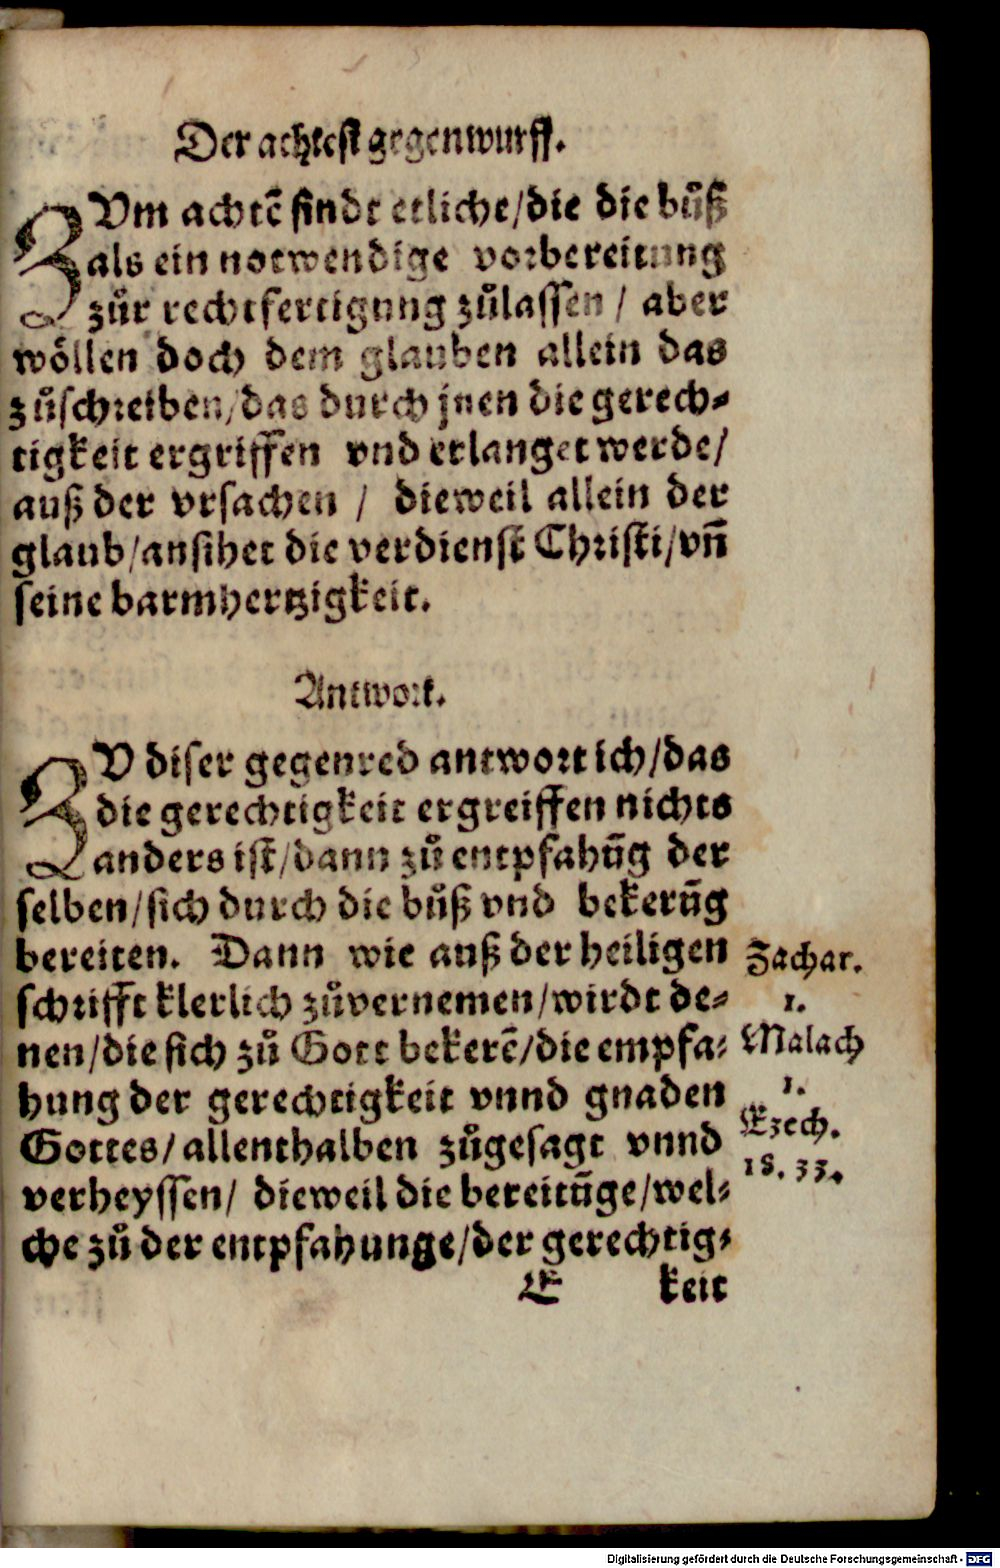 Der achtest gegenwurff.
ZUm achtē findt etliche/die die bůß
als ein notwendige vorbereitung
zůr rechtfertigung zůlassen / aber
wöllen doch dem glauben allein das
zůschreiben/das durch jnen die gerech⸗
tigkeit ergriffen vnd erlanget werde/
auß der vrsachen / dieweil allein der
glaub/ansihet die verdienst Christi/vñ
seine barmhertzigkeit.
Antwort.
ZU diser gegenred antwort ich/das
die gerechtigkeit ergreiffen nichts
anders ist/dann zů entpfahūg der
selben/sich durch die bůß vnd bekerūg
bereiten. Dann wie auß der heiligen
schrifft klerlich zůvernemen/wirdt de⸗
nen/die sich zů Gott bekerē/die empfa⸗
hung der gerechtigkeit vnnd gnaden
Gottes/allenthalben zůgesagt vnnd
verheyssen/ dieweil die bereitūge/wel⸗
che zů der entpfahunge/der gerechtig⸗
E keit
Zachar.
1.
Malach
1.
Ezech.
18. 33.
Digitalisierung gefördert durch die Deutsche Forschungsgemeinschaft - DFG